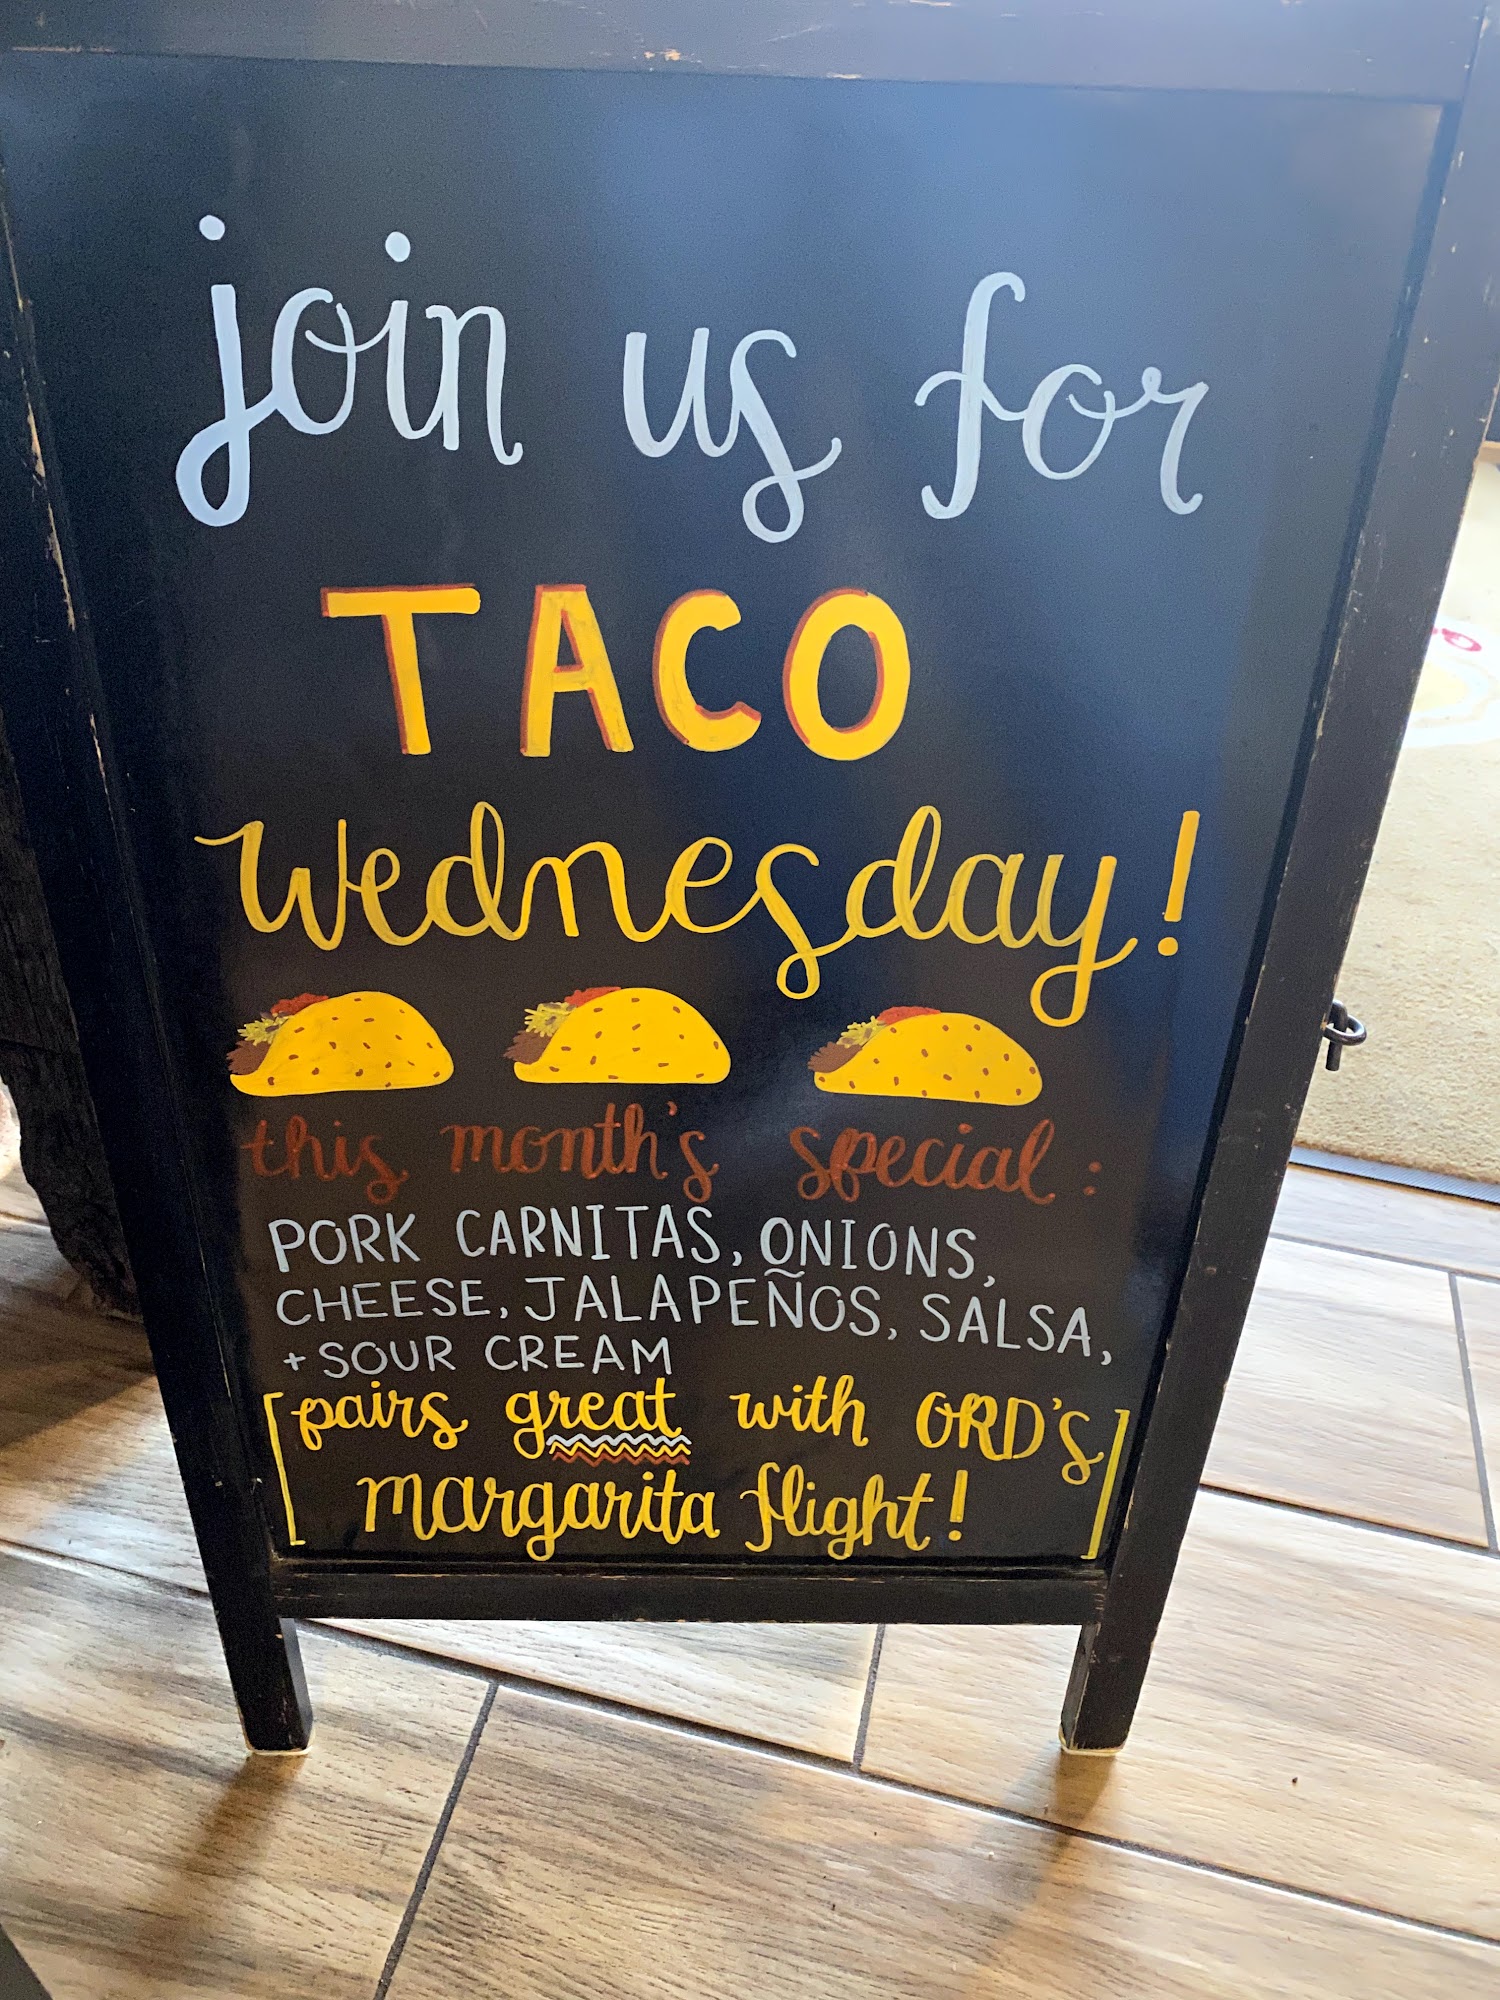 join us for
TACO
Wednesday!
this month's special:
PORK CARNITAS, ONIONS,
CHEESE, JALAPEÑOS, SALSA,
+ SOUR CREAM
[pairs great with ORD's
margarita flight!]